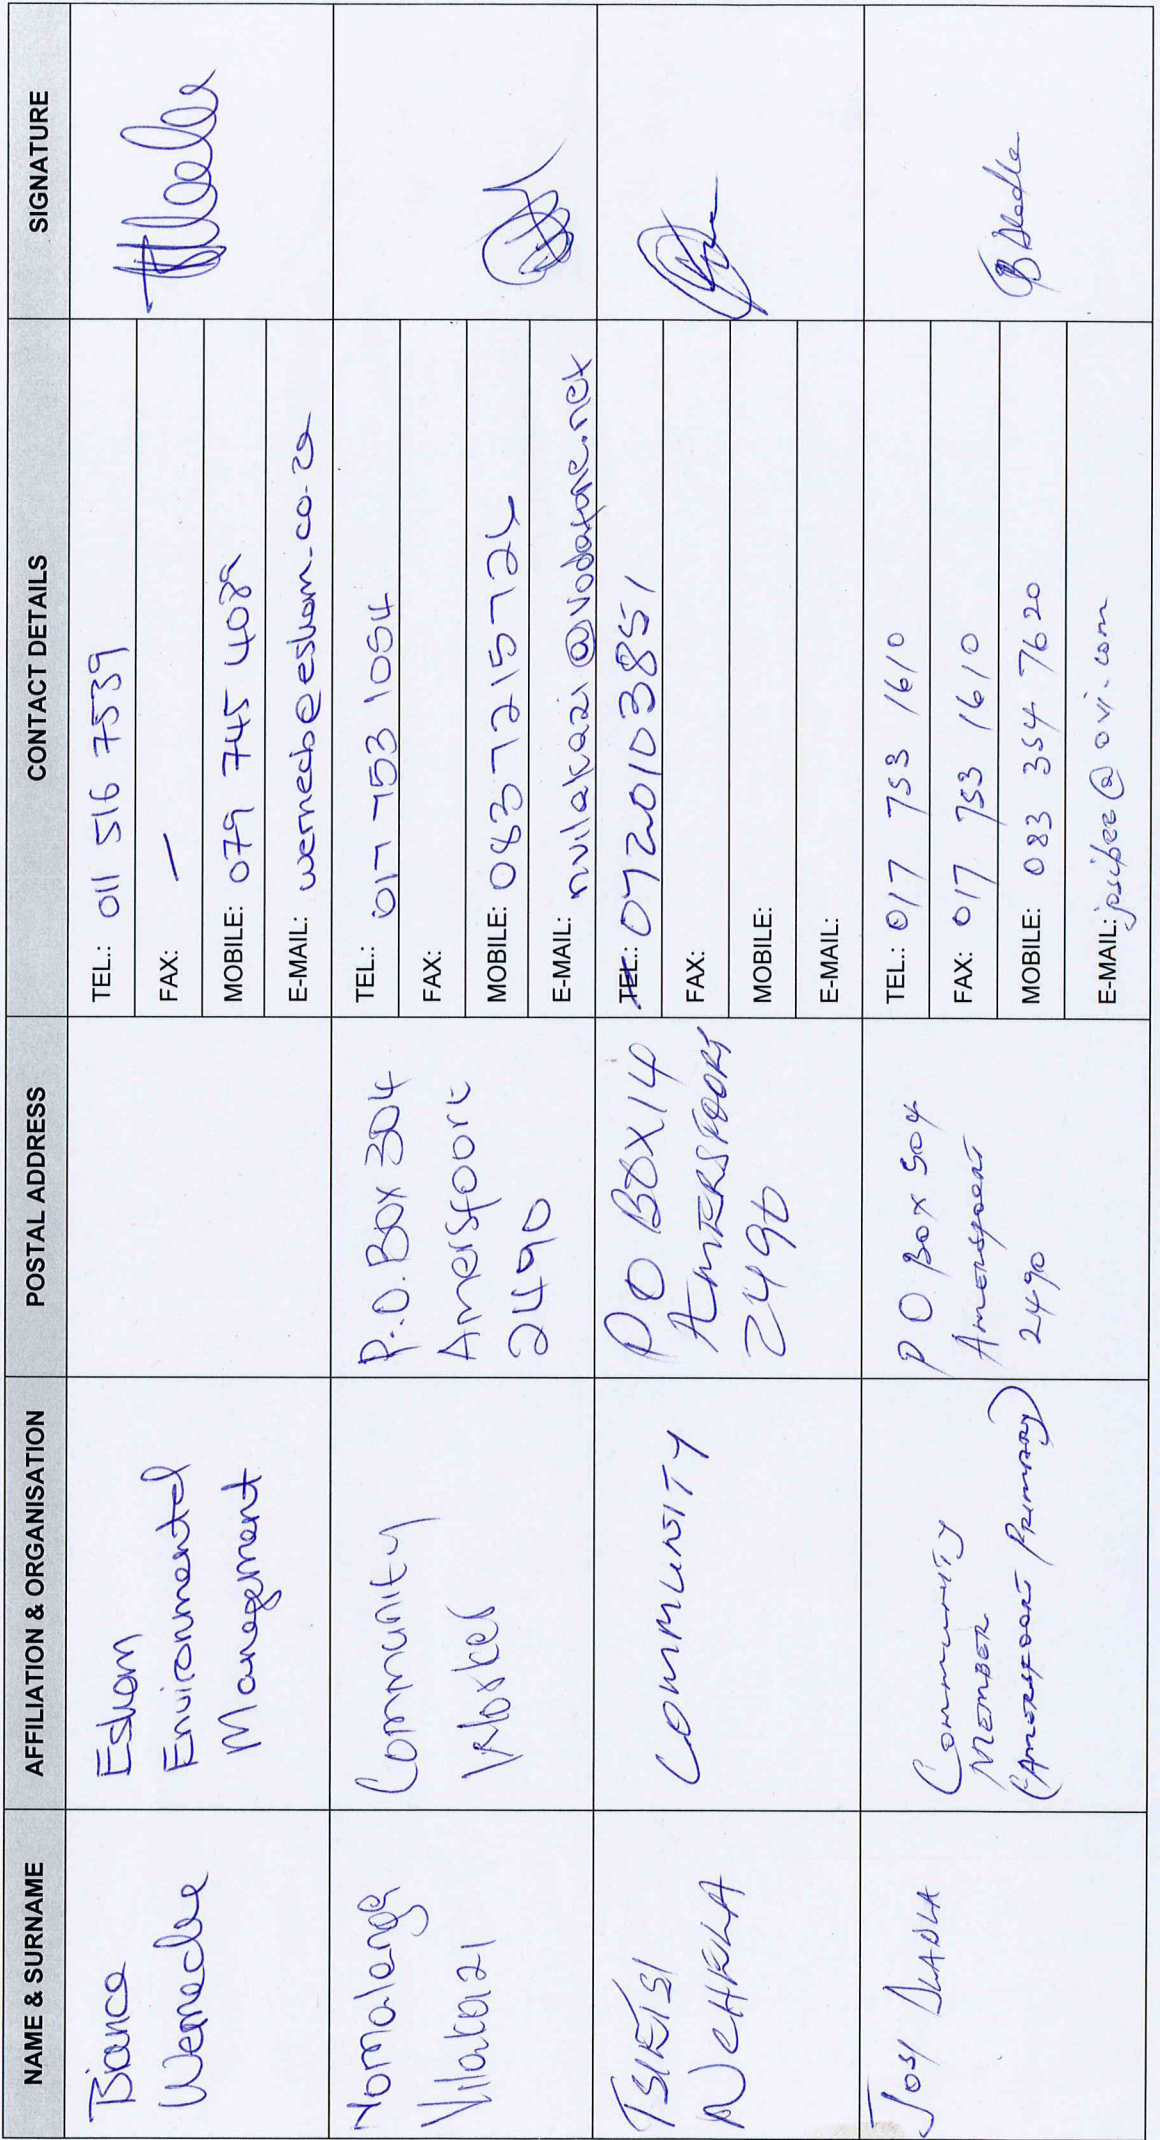 NAME & SURNAME
AFFILIATION & ORGANISATION
POSTAL ADDRESS
CONTACT DETAILS
SIGNATURE
Bianca
Wernecke
Eskom
Environmental
Management
TEL.: 011 516 7539
FAX: —
MOBILE: 079 745 4089
E-MAIL: wernecb@eskom.co.za
Nomalanga
Vilakazi
Community
Worker
P.O. Box 304
Amersfoort
2490
TEL.: 017 753 1054
FAX:
MOBILE: 083 7215724
E-MAIL: nvilakazi@vodafone.net
TSIETSI
COMMUNITY
P O BOX 14
AMERSFOORT
2490
TEL.: 0720103851
FAX:
MOBILE:
E-MAIL:
JOSY DLADLA
COMMUNITY
MEMBER
(AMERSFOORT PRIMARY)
P O BOX 504
AMERSFOORT
2490
TEL.: 017 753 1610
FAX: 017 753 1610
MOBILE: 083 354 7620
E-MAIL: @ovi.com